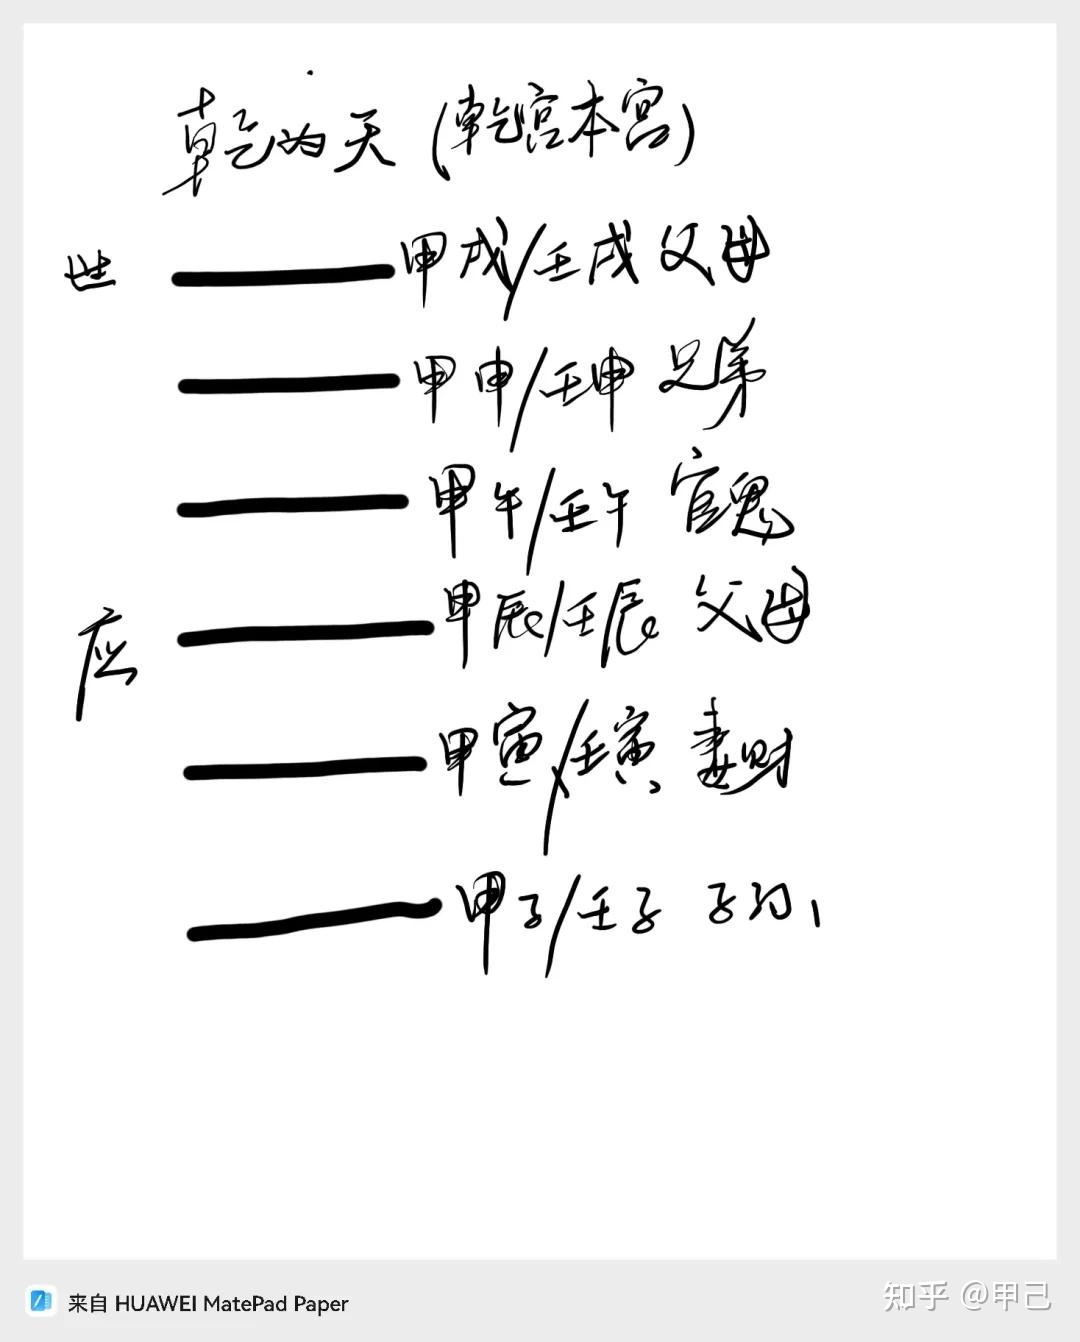 乾为天(乾宫本宫)
世 甲戌/壬戌 父母
甲申/壬申 兄弟
甲午/壬午 官鬼
应 甲辰/壬辰 父母
甲寅/壬寅 妻财
甲子/壬子 子孙
来自 HUAWEI MatePad Paper
知乎 @甲己